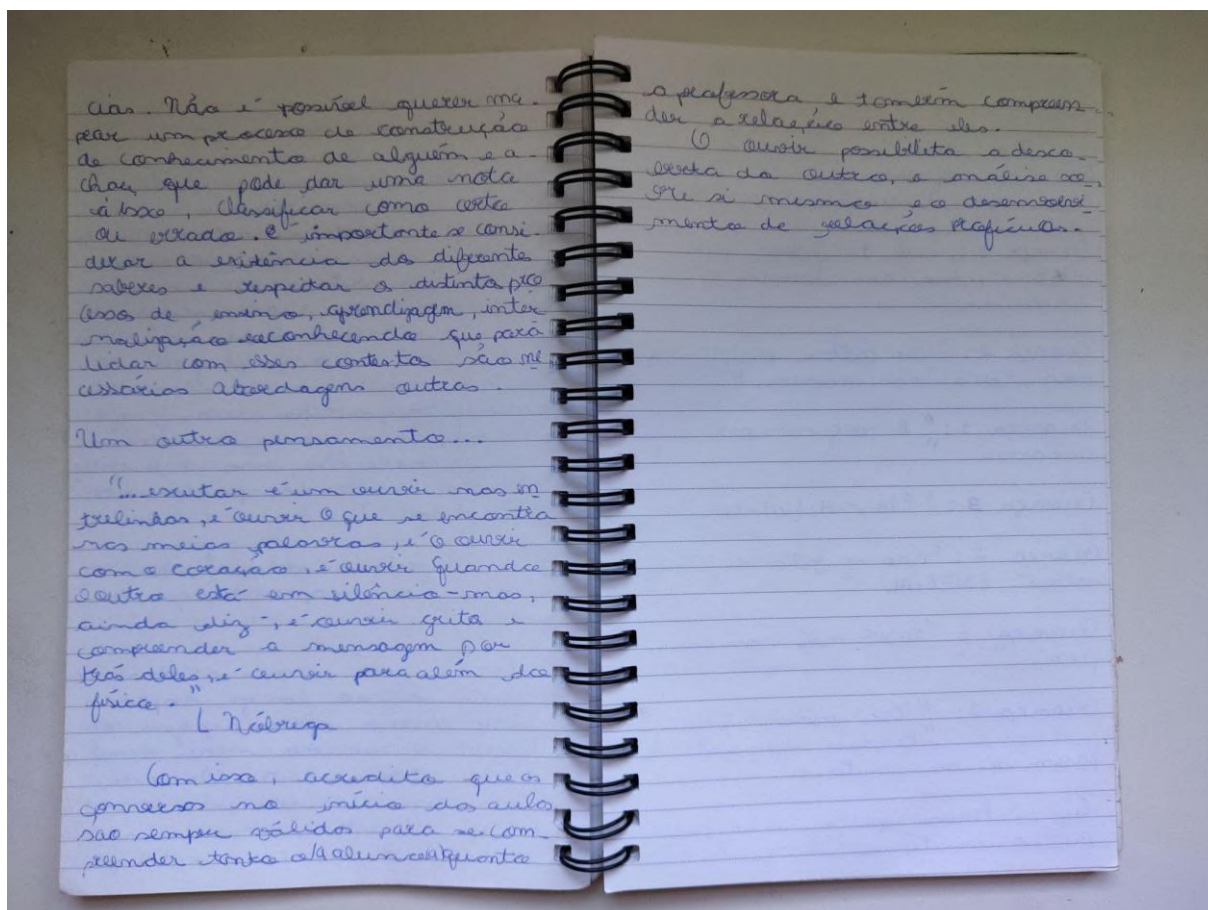 cias. Não é possível querer ma-
pear um processo de construção
de conhecimento de alguém e a-
char que pode dar uma nota
à isso, classificar como certo
ou errado. É importante se consi-
derar a existência dos diferentes
saberes e respeitar o distinto pro
cesso de ensino, aprendizagem, inter
nalização reconhecendo que para
lidar com esses contextos são ne
cessários abordagens outras.
Um outro pensamento...
"... escutar é um ouvir nas en
trelinhas, é ouvir o que se encontra
nas meias palavras, é o ouvir
com o coração, é ouvir quando
o outro está em silêncio - mas,
ainda diz -, é ouvir grito e
compreender a mensagem por
trás deles, é ouvir para além do
físico."
L Nóbrega
Com isso, acredito que as
conversas no início das aulas
são sempre válidas para se com-
preender tanto o/a aluno/a quanto
o professora, e também compreen-
der a relação entre eles.
O ouvir possibilita a desco-
berta do outro, a análise so-
bre si mesmo e o desenvolvi-
mento de relações profícuas.